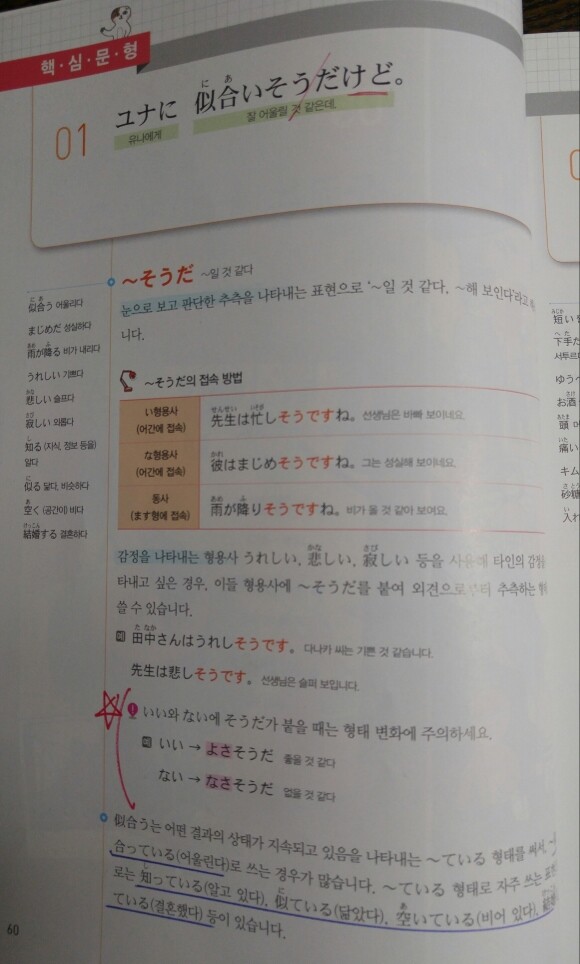 핵·심·문·형
01
ユナに 似合いそうだけど。
に あ
유나에게 잘 어울릴 것 같은데.
~そうだ ~일 것 같다
눈으로 보고 판단한 추측을 나타내는 표현으로 '~일 것 같다, ~해 보인다'라고
니다.
に あ
似合う 어울리다
まじめだ 성실하다
あめ ふ
雨が降る 비가 내리다
うれしい 기쁘다
かな
悲しい 슬프다
さび
寂しい 외롭다
し
知る (지식, 정보 등을)
알다
に
似る 닮다, 비슷하다
あ
空く (공간이) 비다
けっこん
結婚する 결혼하다
~そうだ의 접속 방법
い형용사
(어간에 접속)
せんせい いそが
先生は忙しそうですね。 선생님은 바빠 보이네요.
な형용사
(어간에 접속)
かれ
彼はまじめそうですね。 그는 성실해 보이네요.
동사
(ます형에 접속)
あめ ふ
雨が降りそうですね。 비가 올 것 같아 보여요.
감정을 나타내는 형용사 うれしい, 悲しい, 寂しい 등을 사용해 타인의 감정을
かな さび
타내고 싶은 경우, 이들 형용사에 ~そうだ를 붙여 외견으로부터 추측하는
쓸 수 있습니다.
예 田中さんはうれしそうです。 다나카 씨는 기쁜 것 같습니다.
た なか
先生は悲しそうです。 선생님은 슬퍼 보입니다.
! いい와 ない에 そうだ가 붙을 때는 형태 변화에 주의하세요.
예 いい → よさそうだ 좋을 것 같다
ない → なさそうだ 없을 것 같다
似合う는 어떤 결과의 상태가 지속되고 있음을 나타내는 ~ている 형태를 써서,
合っている(어울린다)로 쓰는 경우가 많습니다. ~ている 형태로 자주 쓰는
로는 知っている(알고 있다), 似ている(닮았다), 空いている(비어 있다),
し に あ
ている(결혼했다) 등이 있습니다.
60
みじか
短い
へ た
下手だ
서투르다
ゆう
お酒
あたま
頭
いた
痛い
キム
さ とう
砂糖
い
入れ